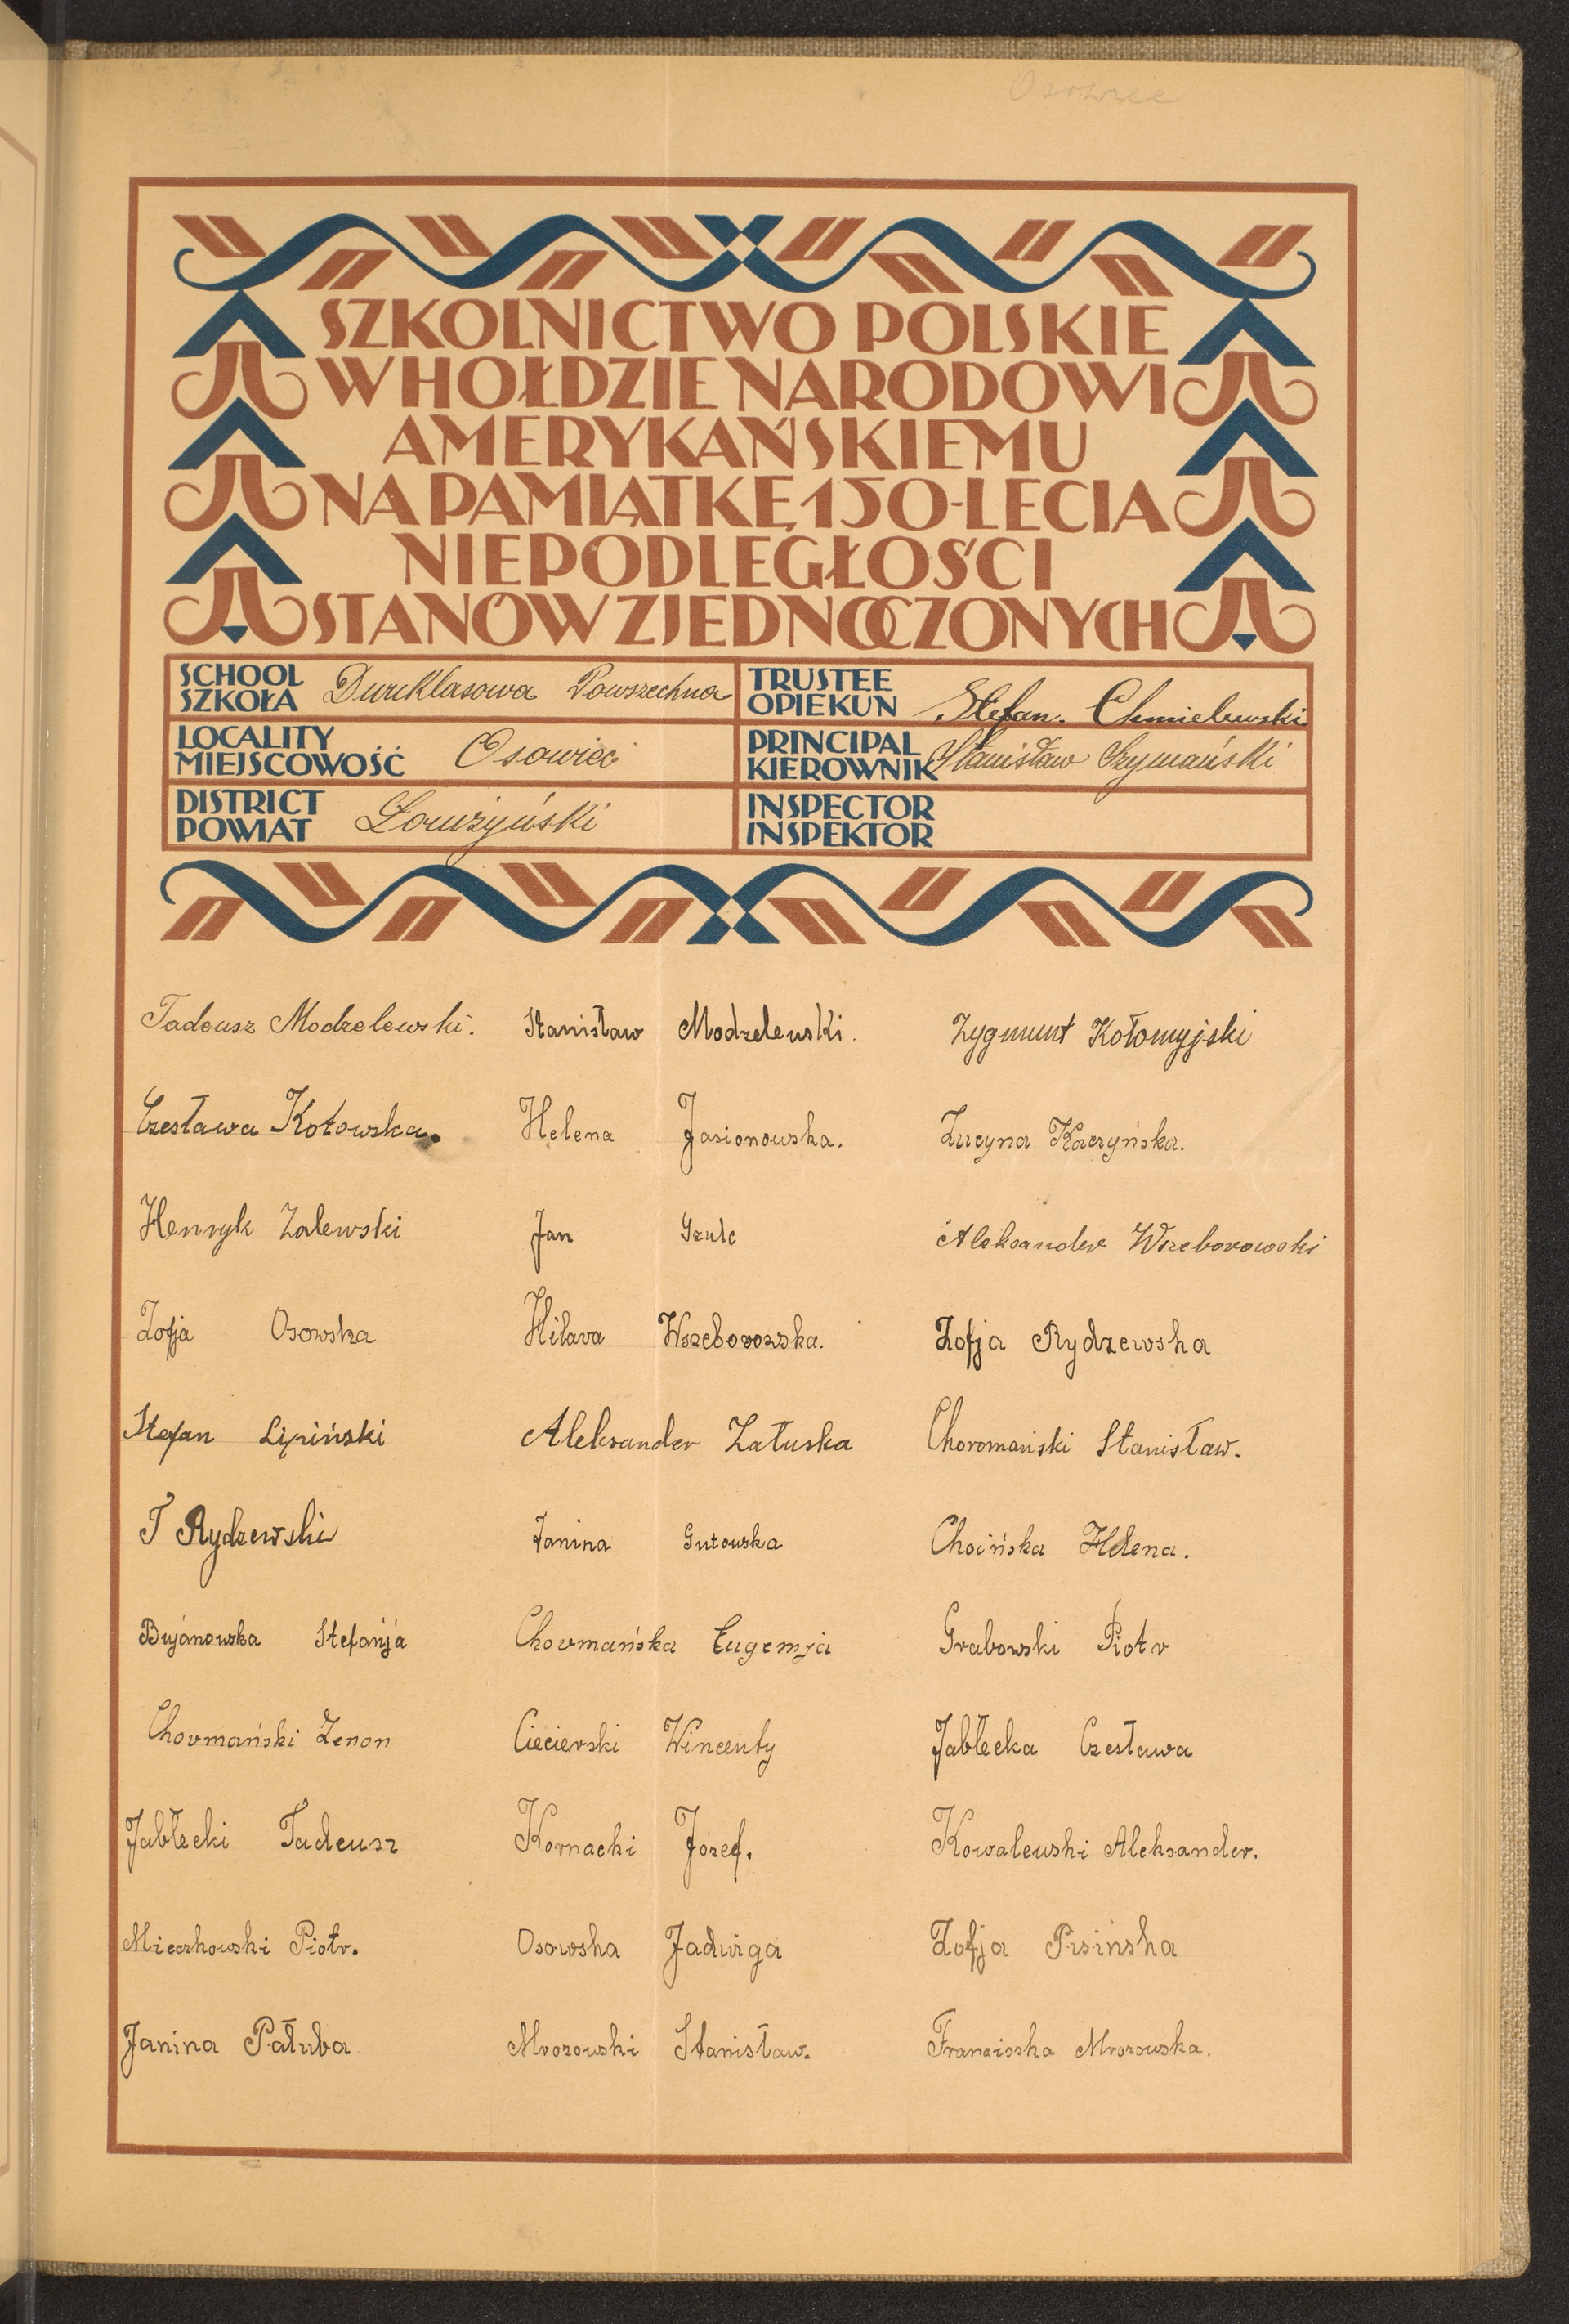 Osowiec
SZKOLNICTWO POLSKIE
W HOŁDZIE NARODOWI
AMERYKAŃSKIEMU
NA PAMIĄTKĘ 150-LECIA
NIEPODLEGŁOŚCI
STANÓW ZJEDNOCZONYCH
SCHOOL
SZKOŁA Dwuklasowa Powszechna
TRUSTEE
OPIEKUN Stefan. Chmielewski
LOCALITY
MIEJSCOWOŚĆ Osowiec
PRINCIPAL
KIEROWNIK Stanisław Szymański
DISTRICT
POWIAT Łomżyński
INSPECTOR
INSPEKTOR
Tadeusz Modzelewski. Stanisław Modzelewski. Zygmunt Kołomyjski
Czesława Kotowska. Helena Jasionowska. Lucyna Kaczyńska.
Henryk Zalewski Jan Szulc Aleksander Wszeborowski
Zofja Osowska Hilara Wszeborowska. Zofja Rydzewska
Stefan Lipiński Aleksander Załuska Choromański Stanisław.
T Rydzewski Janina Gutowska Choińska Helena.
Bujanowska Stefanja Chormańska Eugemja Grabowski Piotr
Chormański Zenon Ciecierski Wincenty Jabłecka Czesława
Jabłecki Tadeusz Kornacki Józef. Kowalewski Aleksander.
Mieczkowski Piotr. Osowska Jadwiga Zofja Pisińska
Janina Pałuba Mrozowski Stanisław. Franciszka Mrozowska.